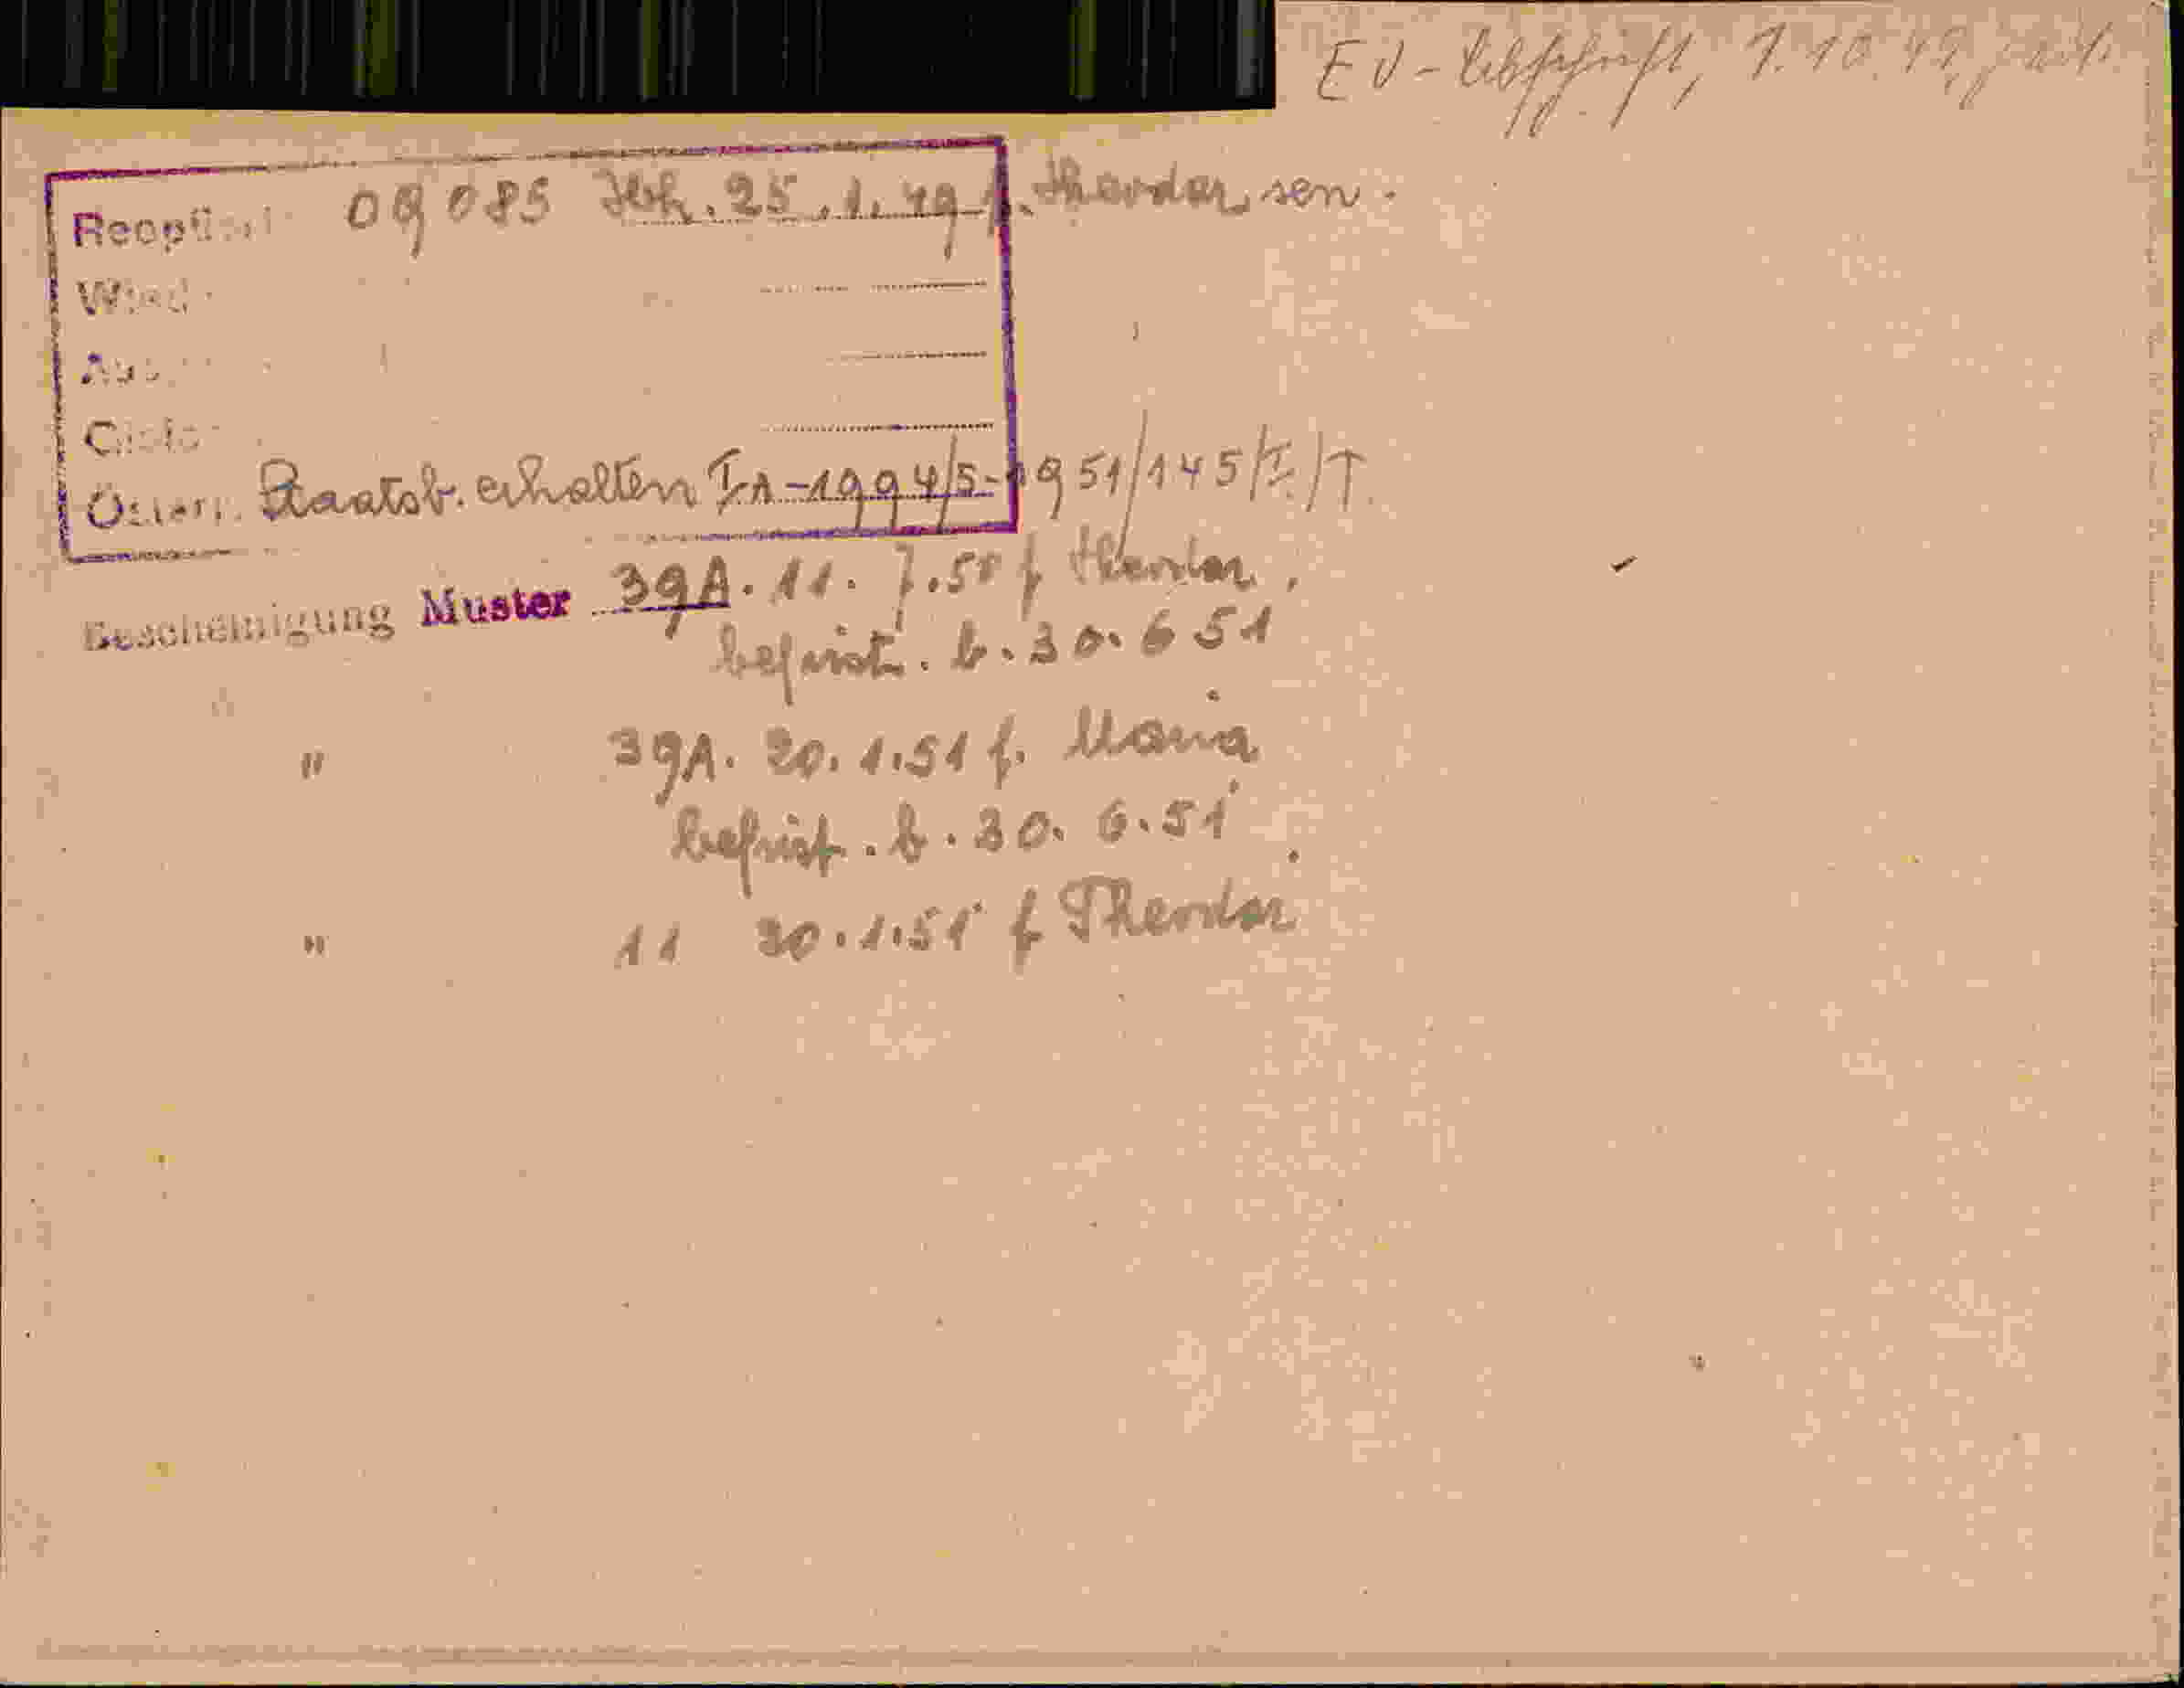 EV-Abschrift, 1.10.49
Reoptiert 09085 Ibk. 25.1.49 f. Theodor sen.
Österr. Staatsb. erhalten IA-1994/5-1951/145/I/T
Bescheinigung Muster 39A. 11. 7.50 f Theodor
befrist. b. 30.6 51
" 39A. 20.1.51 f. Maria
befrist. b. 30. 6.51
" 11 30.1.51 f Theodor